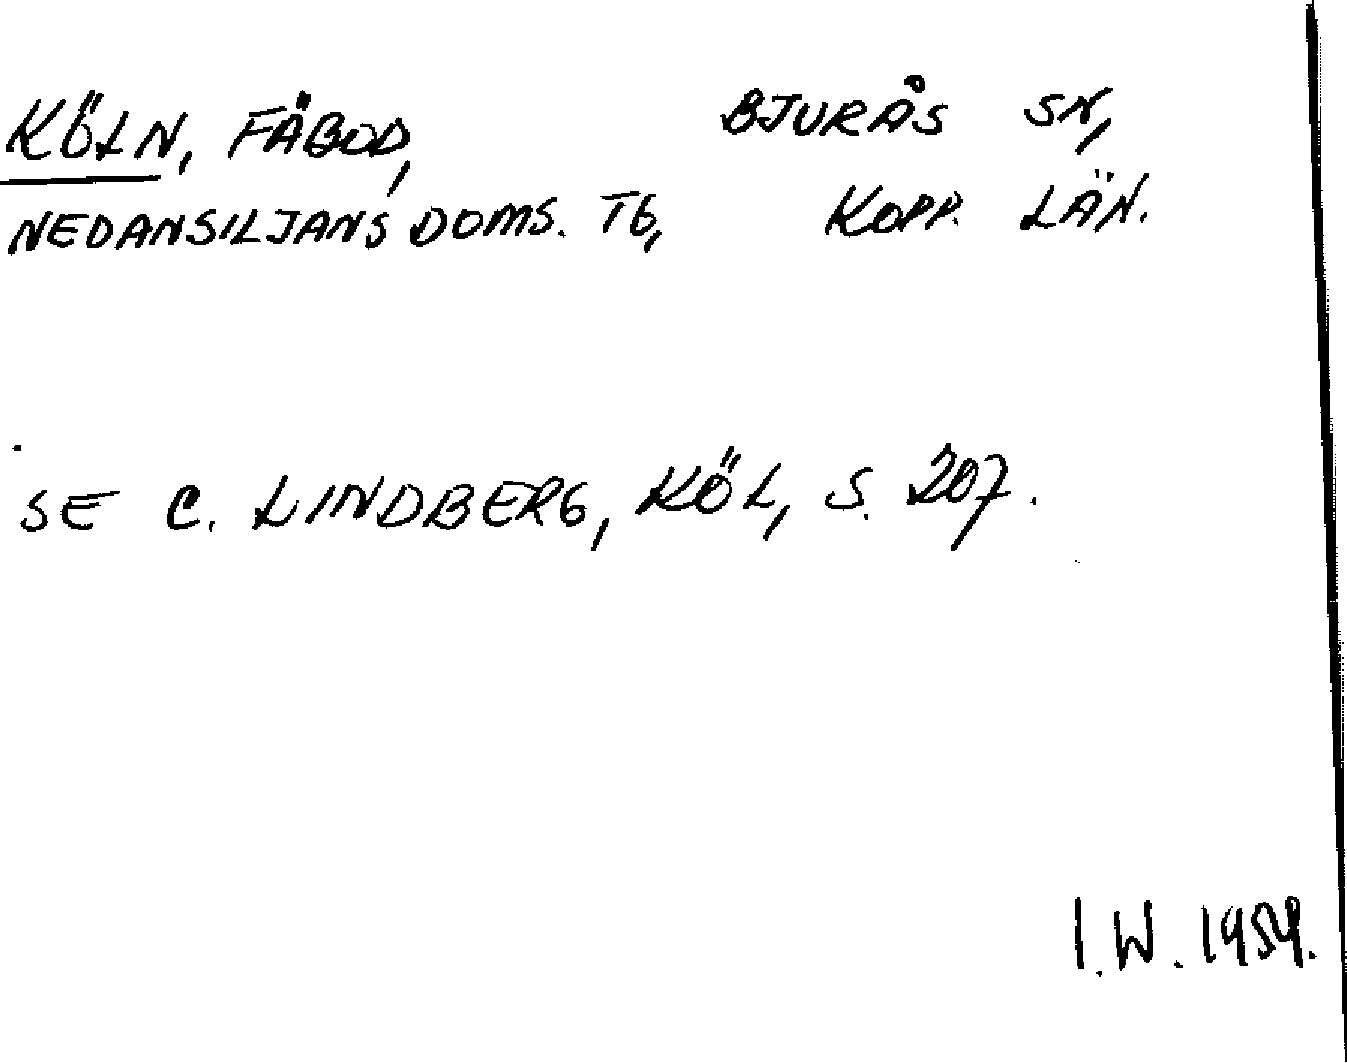 KÖLN, FÄBOD, BJURÅS SN,
NEDANSILJANS DOMS. TG, KOPP. LÄN.
SE C. LINDBERG, KÖL, S. 207.
I.W. 1959.